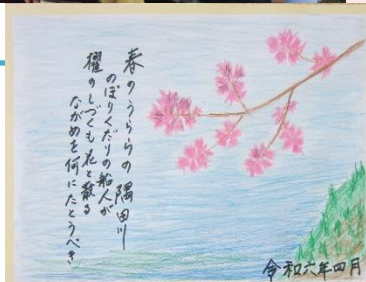 春のうららの隅田川
のぼりくだりの船人が
櫂のしづくも花と散る
ながめを何にたとうべき
令和六年四月